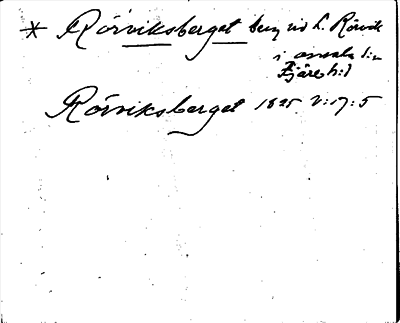 * Rörviksberget berg vid h. Rörvik
i onsala s:n
Fjäre h:d
Rörviksberget 1825. V:17:5